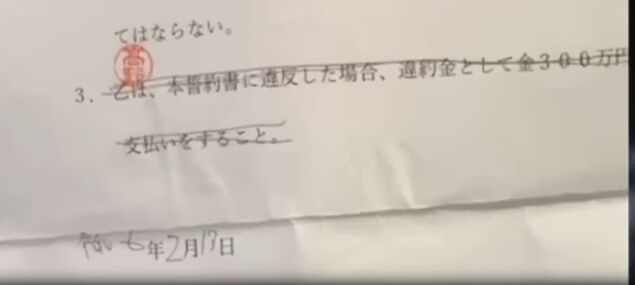 てはならない。
3．乙は、本誓約書に違反した場合、違約金として金300万円
支払いをすること。
令和6年2月17日